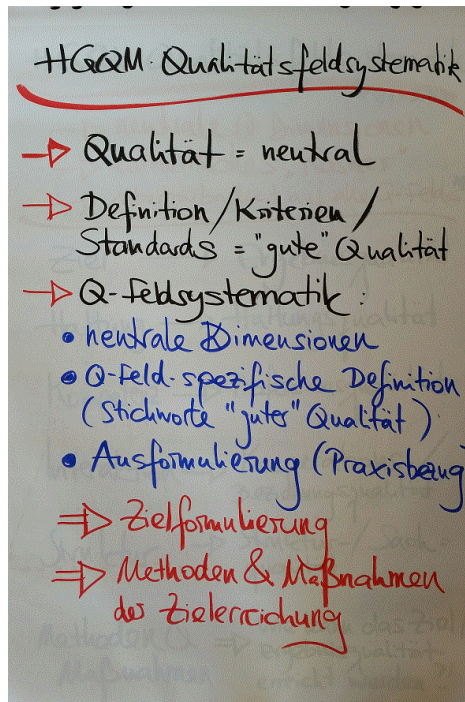 HGQM. Qualitätsfeldsystematik
→ Qualität = neutral
→ Definition/Kriterien/
Standards = "gute" Qualität
→ Q-feldsystematik:
• neutrale Dimensionen
• Q-feld-spezifische Definition
(Stichworte "guter" Qualität)
• Ausformulierung (Praxisbezug)
⇒ Zielformulierung
⇒ Methoden & Maßnahmen
der Zielerreichung